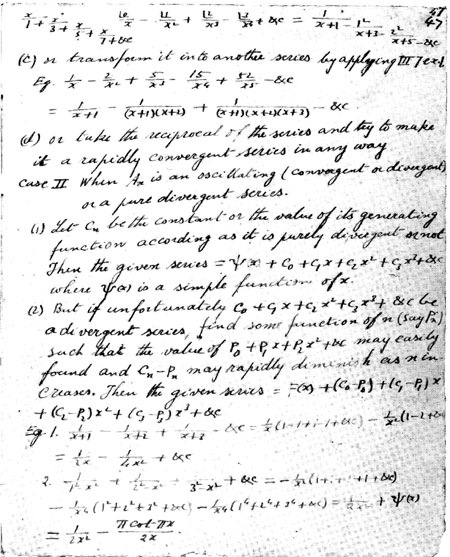 x/1 + x/3 + x/5 + x/7+&c   L0/x - L1/x² + L2/x³ - L3/x⁴ + &c = 1/x+1 - 1²/x+3 - 2²/x+5-&c   47
(c) or transform it into another series by applying III 7 ex 1.
Eg. 1/x - 2/x² + 5/x³ - 15/x⁴ + 52/x⁵ - &c
= 1/x+1 - 1/(x+1)(x+2) + 1/(x+1)(x+2)(x+3) - &c
(d) or take the reciprocal of the series and try to make
it a rapidly convergent series in any way
Case II When Ax is an oscillating (convergent or divergent)
or a pure divergent series.
(1) Let Cn be the constant or the value of its generating
function according as it is purely divergent or not
Then the given series = ψ(x) + C₀ + C₁x + C₂x² + C₃x³ + &c
where ψ(x) is a simple function of x.
(2) But if unfortunately C₀ + C₁x + C₂x² + C₃x³ + &c be
a divergent series, find some function of n (say Pn)
such that the value of P₀ + P₁x + P₂x² + &c may easily
found and Cn - Pn may rapidly diminish as n in
creases. Then the given series = (x) + (C₀-P₀) + (C₁-P₁)x
+ (C₂-P₂)x² + (C₃-P₃)x³ + &c
Eg 1. 1/x+1 - 1/x+2 + 1/x+3 - &c = 1/x(1-1+1-1+&c) - 1/x²(1-2+&c)
= 1/2x - 1/4x² + &c
2. 1/1²-x² + 1/2²-x² + 1/3²-x² + &c = -1/x²(1+1+1+&c)
- 1/x⁴(1²+2²+3²+&c) - 1/x⁶(1⁴+2⁴+3⁴+&c) = 1/2x² + ψ(x)
= 1/2x² - π cot πx/2x